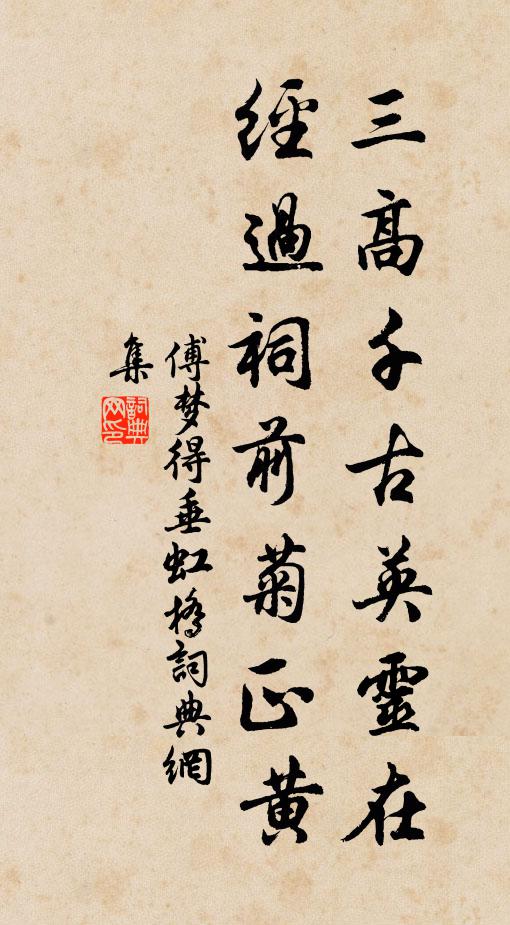 三高千古英靈在
經過祠前菊正黃
傅梦得垂虹橋詞典網
集
詞典
网印